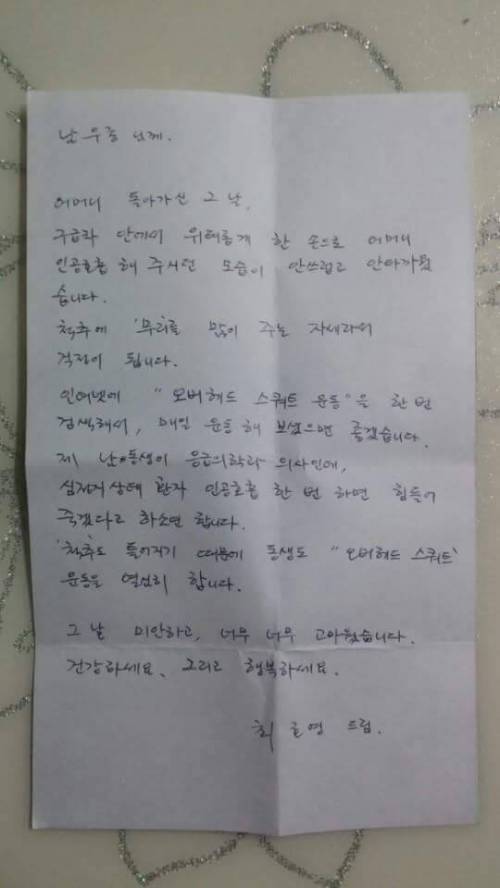 남우중 님께.
어머니 돌아가신 그 날,
구급차 안에서 위태롭게 한 손으로 어머니
인공호흡 해 주시던 모습이 안쓰럽고 안타까웠
습니다.
척추에 '무리'를 많이 주는 자세라서
걱정이 됩니다.
인터넷에 "오버헤드 스쿼트 운동"을 한 번
검색해서, 매일 운동 해 보셨으면 좋겠습니다.
제 남동생이 응급의학과 의사인데,
심정지상태 환자 인공호흡 한 번 하면 힘들어
죽겠다고 하소연 합니다.
'척추'도 틀어지기 때문에 동생도 "오버헤드 스쿼트"
운동을 열심히 합니다.
그 날 미안하고, 너무 너무 고마웠습니다.
건강하세요. 그리고 행복하세요.
최 영 드림.